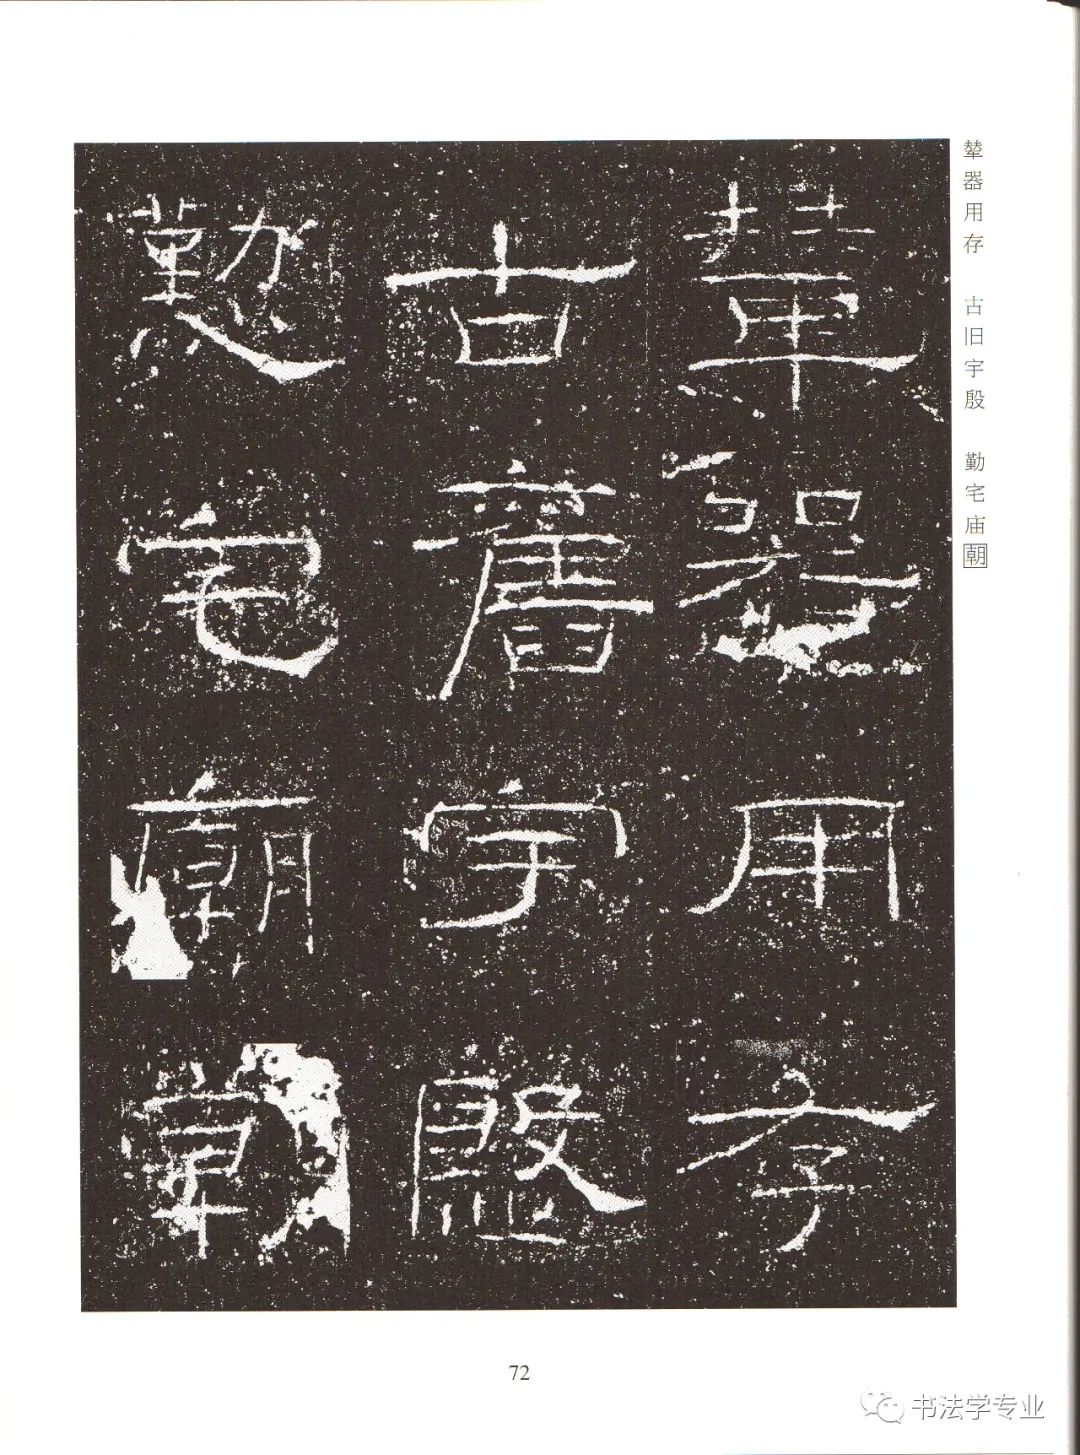 輦器用存 古旧宇殷 勤宅庙朝
輦器用存
古舊宇殷
懃宅廟朝
72
书法学专业